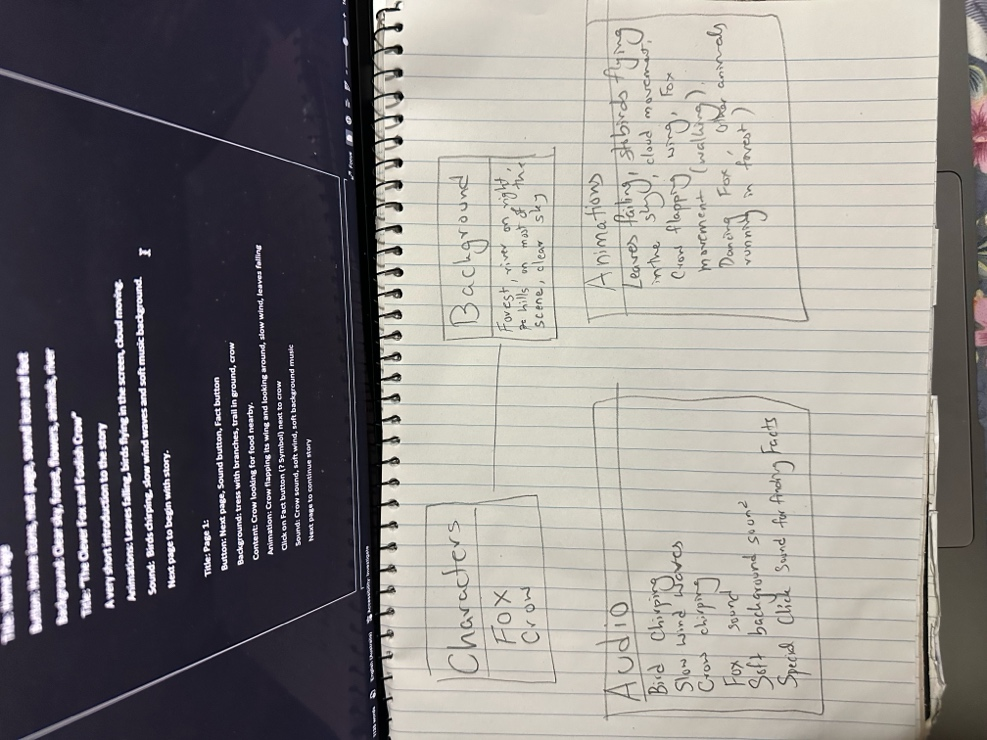 Title: Home Page
Button: Home icon, next page, sound icon and fact
Background: Clear sky, forest, flowers, animals, river
Title: "The Clever Fox and Foolish Crow"
A very short introduction to the story
Animations: Leaves falling, birds flying in the screen, cloud moving.
Sound: Birds chirping, slow wind waves and soft music background.
Next page to begin with story.
Title: Page 1:
Button: Next page, Sound button, Fact button
Background: tress with branches, trail in ground, crow
Content: Crow looking for food nearby.
Animation: Crow flapping its wing and looking around, slow wind, leaves falling
Click on Fact button (? Symbol) next to crow
Sound: Crow sound, soft wind, soft background music
Next page to continue story
English (Australia)
Accessibility: Investigate
Focus
Characters
Fox
Crow
Background
Forest, river on right,
hills on most of the
scene, clear sky
Audio
Bird Chirping
Slow Wind Waves
Crow chirping
Fox sound
Soft background sound
Special Click Sound for finding Facts
Animations
Leaves falling, birds flying
in the sky, cloud movement,
Crow flapping wing, Fox
movement (walking),
Dancing Fox, Other animals
running in forest)